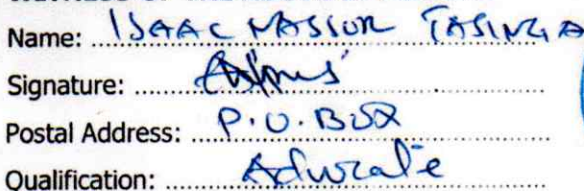 Name: ISAAC NASSOR TASINGA
Signature:
Postal Address: P.O. BOX
Qualification: Advocate